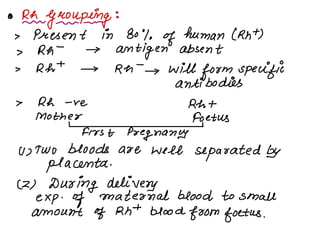 • Rh grouping:
> Present in 80% of human (Rh+)
> Rh⁻ → antigen absent
> Rh⁺ → Rh⁻ → will form specific
antibodies
> Rh -ve Rh+
Mother Foetus
First Pregnancy
(1) Two bloods are well separated by
placenta.
(2) During delivery
exp. of maternal blood to small
amount of Rh+ blood from foetus.